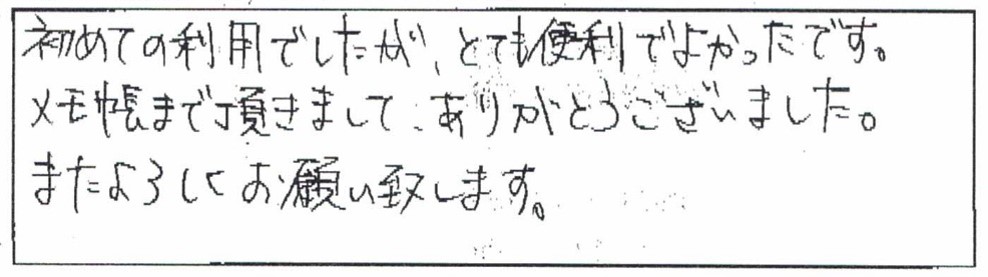 初めての利用でしたが、とても便利でよかったです。
メモ帳まで頂きまして、ありがとうございました。
またよろしくお願い致します。